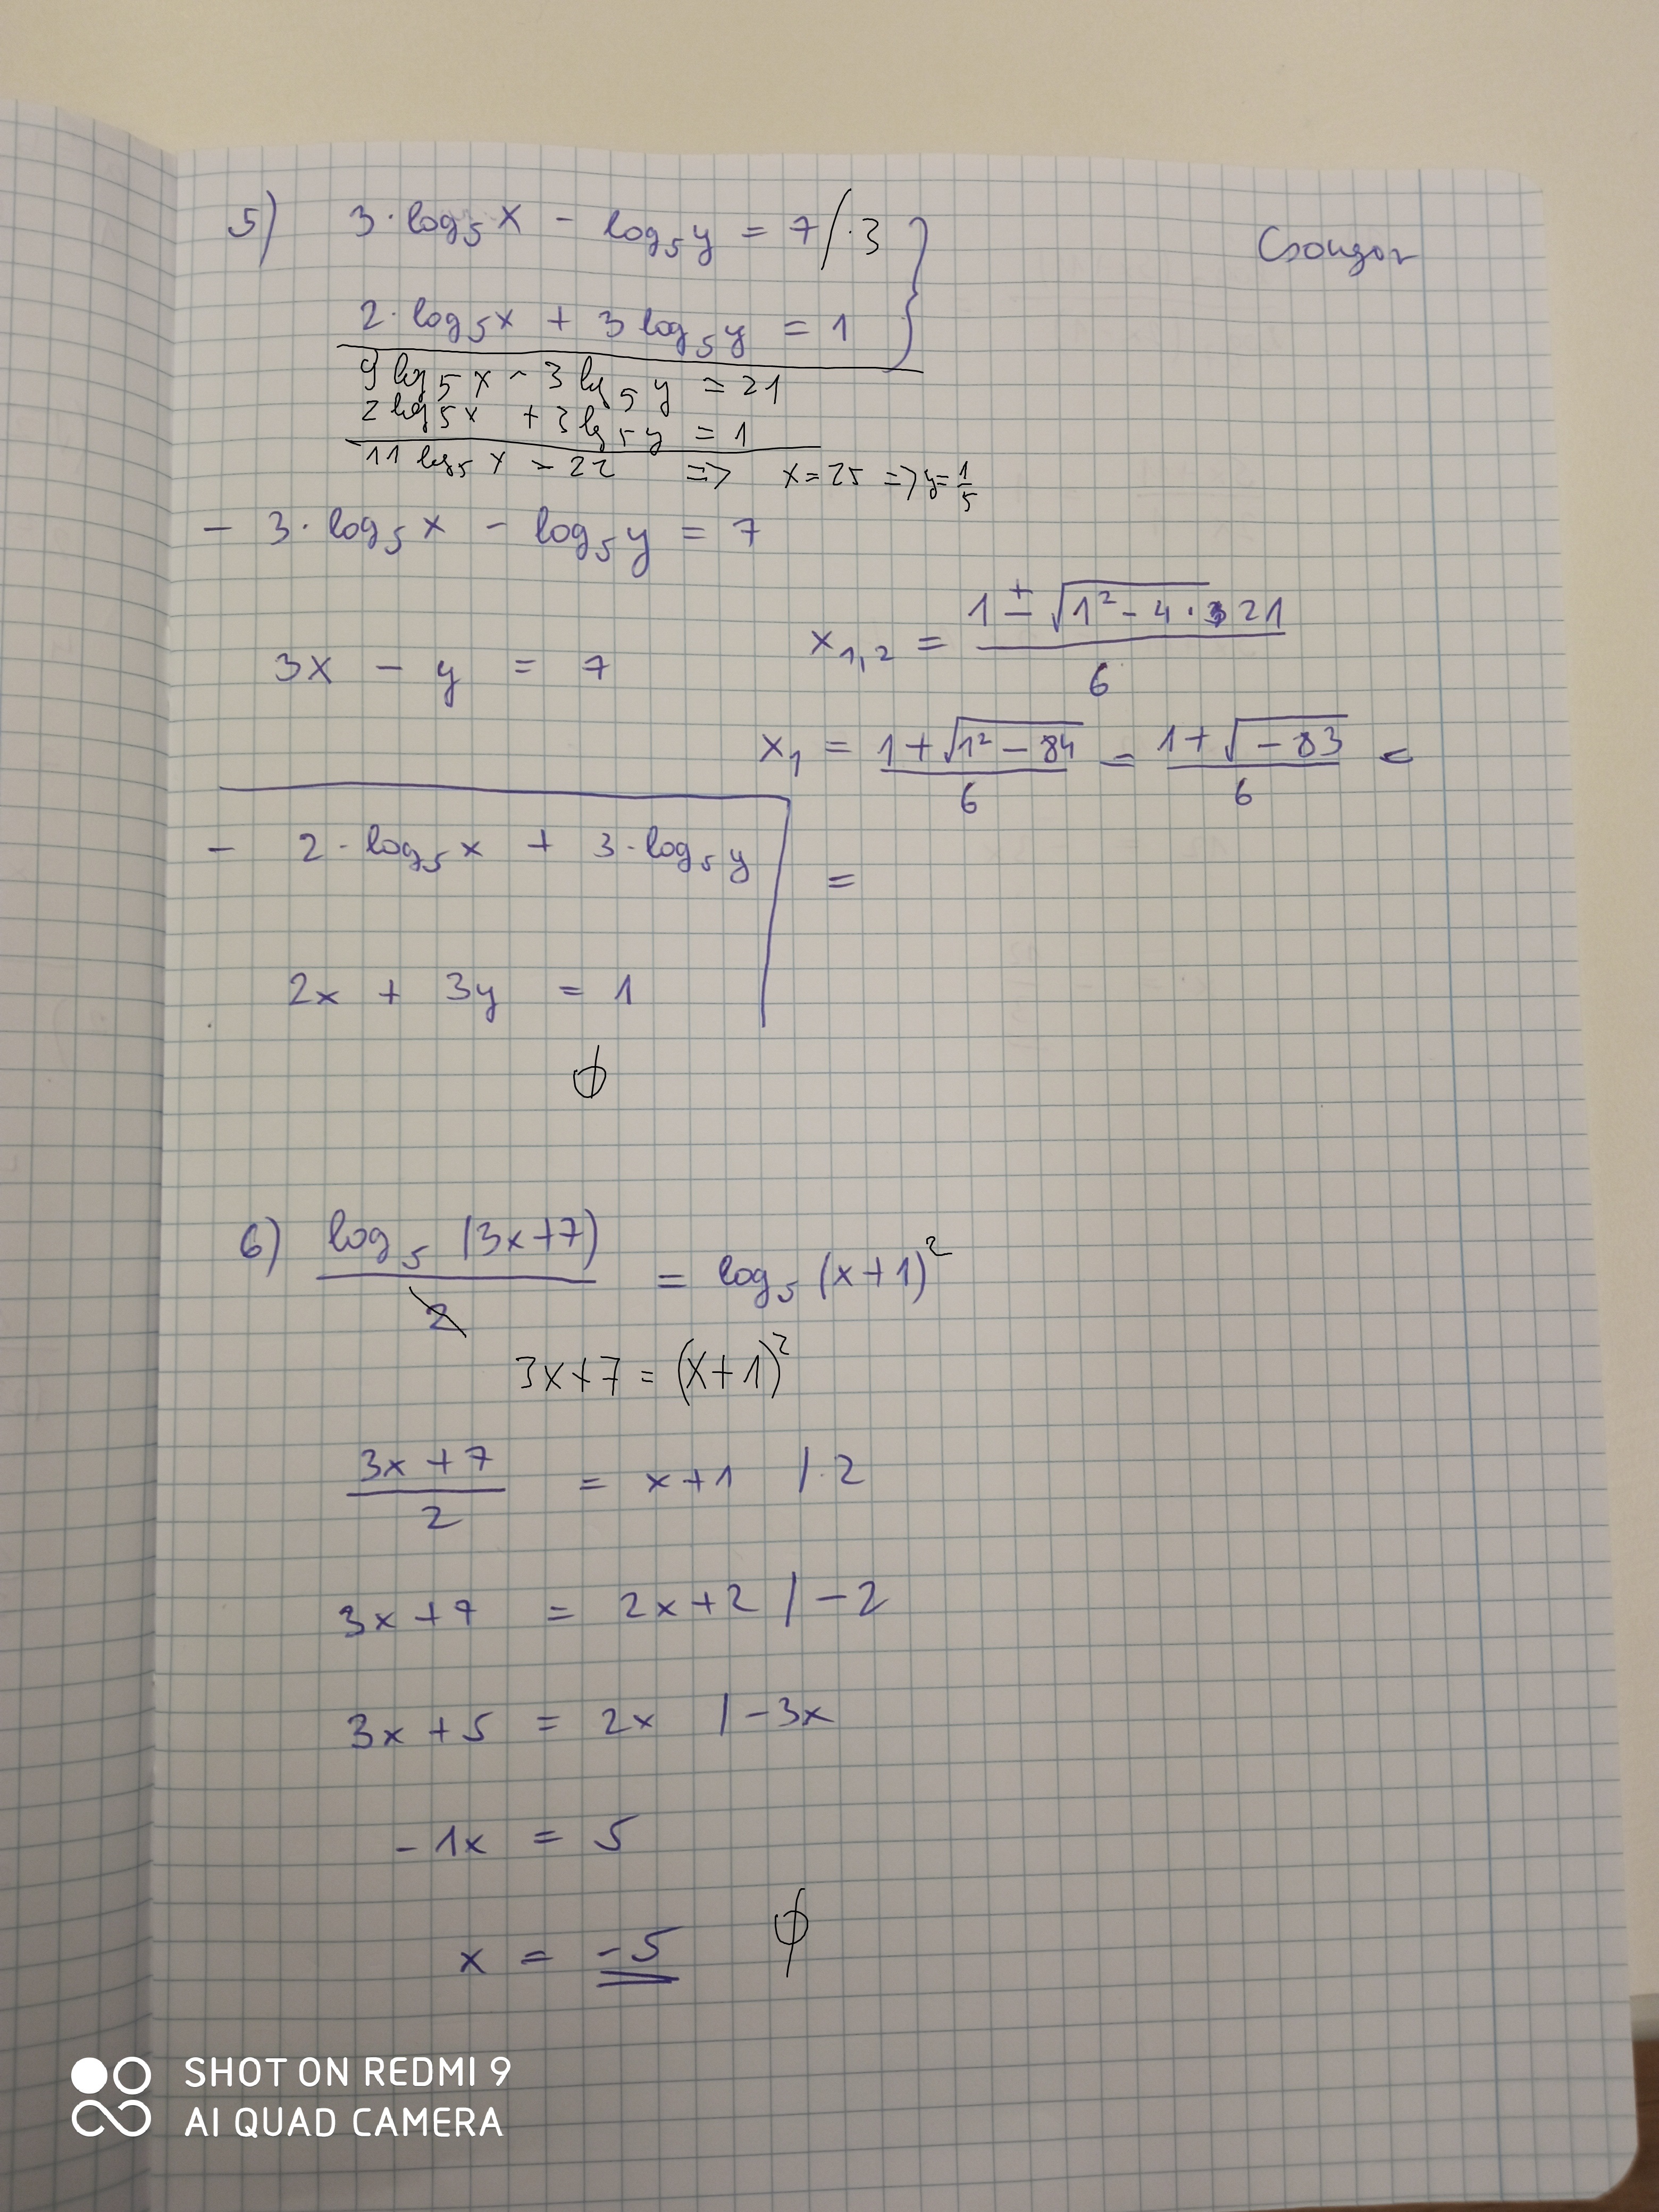 5) 3·log₅x - log₅y = 7 /·3 }
Csongor
2·log₅x + 3 log₅y = 1
9 log₅x - 3 log₅y = 21
2 log₅x + 3 log₅y = 1
11 log₅x = 22 => x = 25 => y = 1/5
- 3·log₅x - log₅y = 7
x₁,₂ = (1 ± √(1² - 4 · 21)) / 6
3x - y = 7
x₁ = (1 + √(1² - 84)) / 6 = (1 + √(-83)) / 6 =
- 2·log₅x + 3·log₅y =
2x + 3y = 1
φ
6) log₅ (3x+7) / 2 = log₅ (x+1)²
3x+7 = (x+1)²
(3x+7) / 2 = x+1 /·2
3x+7 = 2x+2 / -2
3x+5 = 2x / -3x
-1x = 5
x = -5 φ
SHOT ON REDMI 9
AI QUAD CAMERA